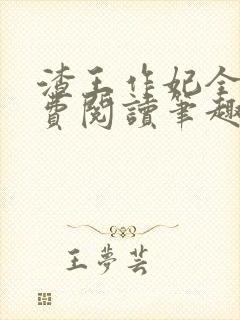 渣王作妃全
費閱讀筆趣
王夢芸